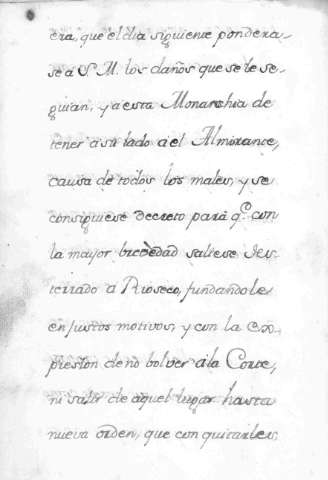 era, que el dia siguiente pondera-
se a S. M. los daños que se le se-
guian, y a esta Monarchia de
tener a su lado a el Almirante,
causa de todos los males, y se
consiguiese decreto para q.e con
la mayor brebedad saliese des-
terrado a Rioseco, fundandole
en justos motivos, y con la ex-
presion de no bolver a la Corte,
ni salir de aquel lugar hasta
nueva orden, que con quitarles